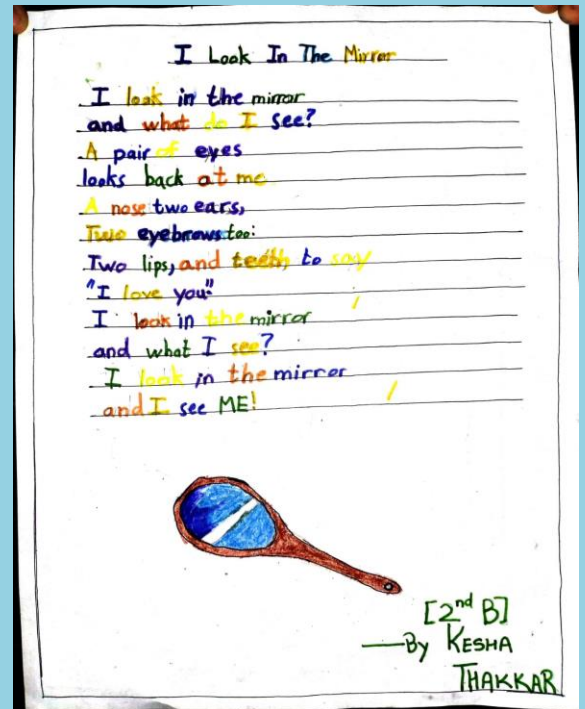 I Look In The Mirror
I look in the mirror
and what do I see?
A pair of eyes
looks back at me
A nose two ears,
Two eyebrows too:
Two lips, and teeth, to say
"I love you"
I look in the mirror
and what I see?
I look in the mirror
and I see ME!
[2nd B]
—By KESHA
THAKKAR